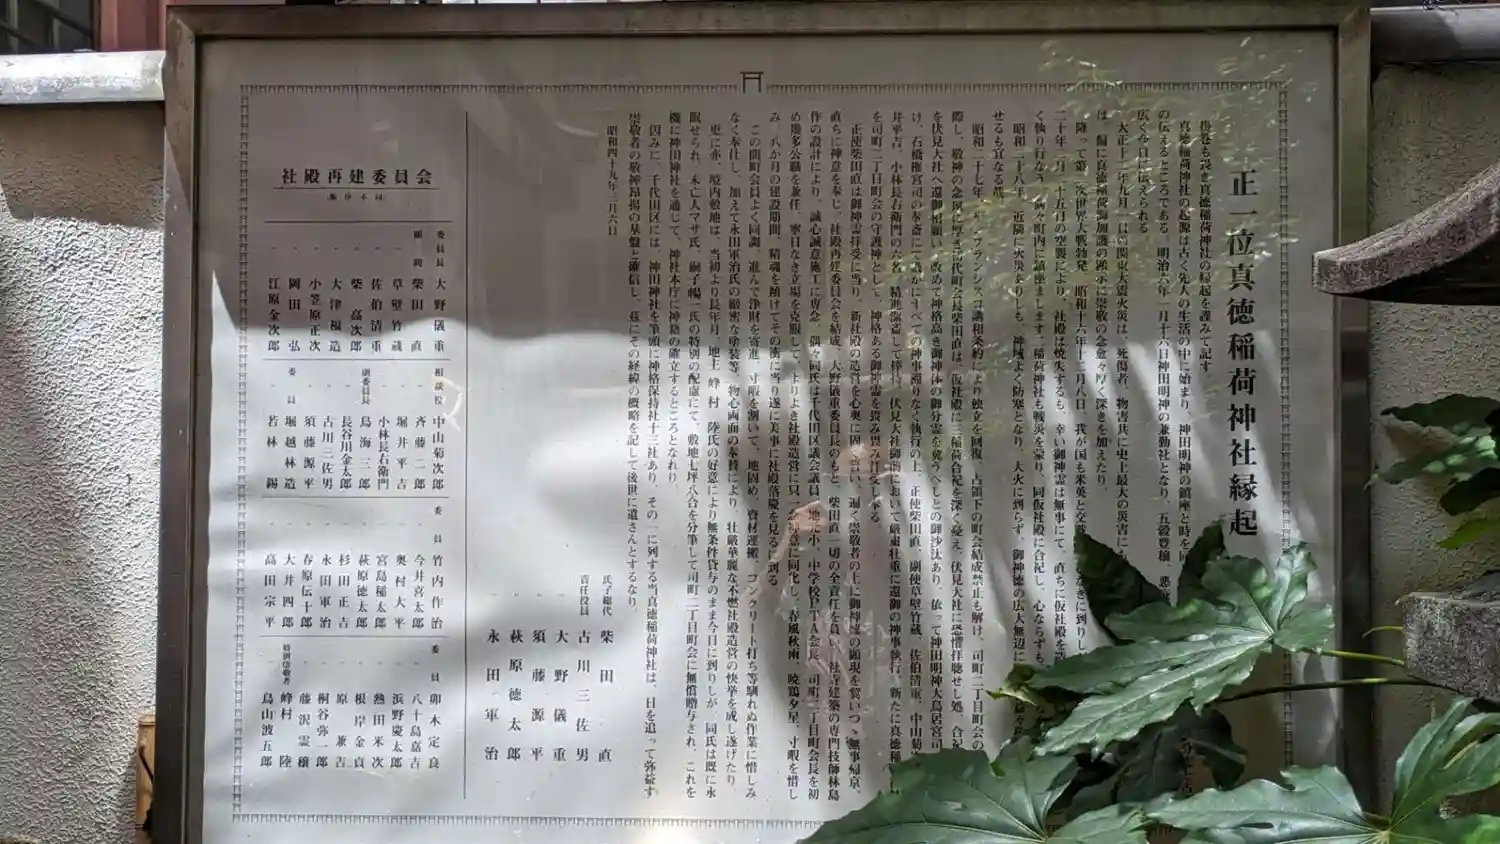 正一位真徳稲荷神社縁起
畏くも哉き真徳稲荷神社の縁起を謹みて記す
真徳稲荷神社の起源は古く先人の生活の中に始まり、神田明神の鎮座と時を同
の伝えるところである。明治六年一月十六日神田明神の兼勤社となり、五穀豊穣、悪
広く今日に伝えられる
大正十二年九月一日の関東大震火災は、死傷者、物害共に史上最大の災害に
は、偏に真徳稲荷御加護の顕示と崇敬の念愈々厚く深きを加えたり
降って第二次世界大戦勃発、昭和十六年十二月八日、我が国も米英と交戦
二十年二月二十五日の空襲により、社殿は焼失するも、幸い御神霊は無事にて、直ちに仮社殿を
く執り行な
町内に鎮座まします二稲荷神社も戦災を蒙り、同仮社殿に合祀し、心ならずも
昭和二十八年、近隣に火災ありしも、神域よく防塞となり、大火に到らず、御神徳の広大無辺に
せるも宜なる哉
昭和二十七年、サンフランシスコ講和条約により独立を回復、占領下の町会結成禁止も解け、司町二丁目町会の
際し、敬神の念
町会長柴田直は、仮社殿に三稲荷合祀を深く憂え、伏見大社に恐懼拝聴せし処、合祀
を伏見大社へ還御相願い、改めて神格高き御神体の御分霊を奨うべしとの御沙汰あり、依って神田明神大鳥居宮司
け、石橋権宮司の奉斎にて
すべての神事滞りなく執行の上、正使柴田直、副使草壁竹蔵、佐伯清重、中山菊
井平吉、小林長右衛門の六名、精進潔斎して捧持、伏見大社御前において厳粛壮重に還御の神事執行、新たに真徳稲
を司町二丁目町会の守護神として、神格ある御神霊を畏み畏み拝受し奉る
正使柴田直は御神霊拝受に当り、新社殿の造営を心奥に固く誓い、遍く崇敬者の上に御神徳の顕現を冀いつゝ無事帰京、
直ちに神意を奉じ、社殿再建委員会を結成、大野儀重委員長のもと、柴田直一切の全責任を負い、社寺建築の専門技師林島
作の設計により、誠心誠意施工に専念、偶々同氏は千代田区議会議員、地元小、中学校PTA会長、司町二丁目町会長を初
め幾多公職を兼任、寧日なき立場を克服して、よりよき社殿造営に只
神意に同化し、春風秋雨、暁鶏夕星、寸暇を惜し
み、八か月の建設期間、精魂を傾けてその衝に当り遂に美事に社殿落慶を見るに到る
この間町会員よく同調、進んで浄財を寄進、寸暇を割いて、地固め、資材運搬、コンクリート打ち等馴れぬ作業に惜しみ
なく奉仕し、加えて永田軍治氏の緻密な塗装等、物心両面の奉賛により、壮厳華麗な不燃社殿造営の快挙を成し遂げたり
更に亦、境内敷地は、当初より長年月、地主、峰村 陸氏の好意により無条件貸与のまま今日に到りしが、同氏は既に永
眠せられ、未亡人マサ氏、嗣子暢一氏の特別の配慮にて、敷地七坪八合を分筆して司町二丁目町会に無償贈与され、これを
機に神田神社を通じて、神社本庁に神籍の確立するところとなれり
因みに、千代田区には、神田神社を筆頭に神格保持社十三社あり、その一に列する当真徳稲荷神社は、日を追って弥益す
崇敬者の敬神昂揚の基盤と確信し、茲にその経緯の概略を記して後世に遺さんとするなり。
昭和四十九年三月六日
氏子総代 柴田 直
責任役員 古川三佐男
〃 大野儀重
〃 須藤源平
〃 萩原徳太郎
〃 永田軍治
社殿再建委員会
順序不同
委員長 大野儀重
顧問 柴田 直
〃 草壁竹蔵
〃 佐伯清重
〃 柴 高次郎
〃 大津福造
〃 小笠原正次
〃 岡田 弘
〃 江原金次郎
相談役 中山菊次郎
〃 斉藤二郎
〃 堀井平吉
〃 小林長右衛門
副委員長 鳥海三郎
〃 長谷川金太郎
〃 古川三佐男
〃 須藤源平
委員 堀越林造
〃 若林 錫
委員 竹内作治
〃 今井喜太郎
〃 奥村大平
〃 宮島稲太郎
〃 萩原徳太郎
〃 杉田正吉
〃 永田軍治
〃 春原伝十郎
〃 大井四郎
〃 高田宗平
委員 卯木定良
〃 八十島嘉吉
〃 浜野慶太郎
〃 熱田米次
〃 根岸金貞
〃 原 兼吉
〃 桐谷弥一郎
〃 藤沢霊穣
特別崇敬者 峰村 陸
〃 鳥山波五郎